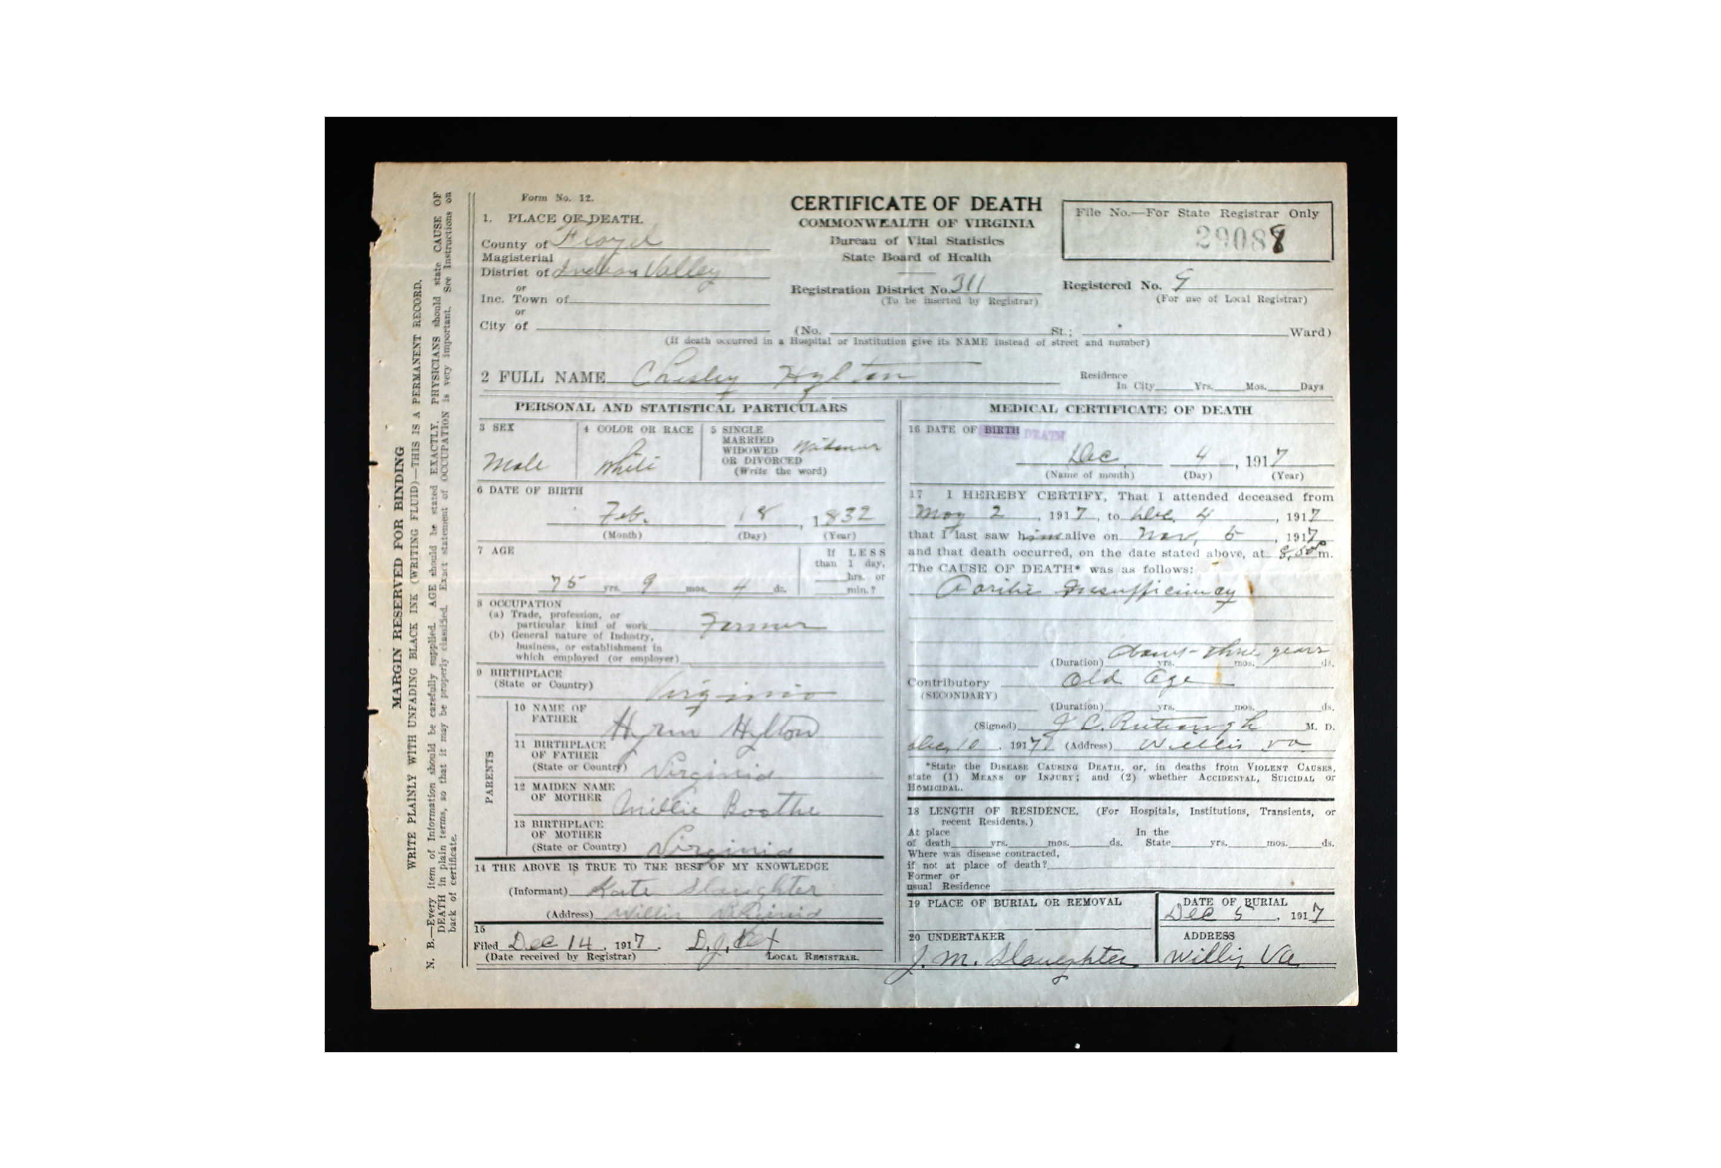 MARGIN RESERVED FOR BINDING
WRITE PLAINLY WITH UNFADING BLACK INK (WRITING FLUID)—THIS IS A PERMANENT RECORD.
N. B.—Every item of Information should be carefully supplied. AGE should be stated EXACTLY. PHYSICIANS should state CAUSE OF
DEATH in plain terms, so that it may be properly classified. Exact statement of OCCUPATION is very important. See Instructions on
back of certificate.
Form No. 12.
1. PLACE OF DEATH.
County of Floyd
Magisterial
District of Indian Valley
or
Inc. Town of
or
City of
CERTIFICATE OF DEATH
COMMONWEALTH OF VIRGINIA
Bureau of Vital Statistics
State Board of Health
Registration District No. 311
(To be inserted by Registrar)
File No.—For State Registrar Only
29088
Registered No. 9
(For use of Local Registrar)
(No. St.; Ward)
(If death occurred in a Hospital or Institution give its NAME instead of street and number)
2 FULL NAME Chesley Hylton
Residence
In City Yrs. Mos. Days
PERSONAL AND STATISTICAL PARTICULARS
3 SEX
Male
4 COLOR OR RACE
White
5 SINGLE
MARRIED
WIDOWED
OR DIVORCED
(Write the word)
6 DATE OF BIRTH
Feb. 18, 1832
(Month) (Day) (Year)
7 AGE
75 yrs. 9 mos. 4 ds.
If LESS
than 1 day,
hrs. or
min.?
8 OCCUPATION
(a) Trade, profession, or
particular kind of work Farmer
(b) General nature of Industry,
business, or establishment in
which employed (or employer)
9 BIRTHPLACE
(State or Country) Virginia
PARENTS
10 NAME OF
FATHER Hyrm Hylton
11 BIRTHPLACE
OF FATHER
(State or Country) Virginia
12 MAIDEN NAME
OF MOTHER Millie Boothe
13 BIRTHPLACE
OF MOTHER
(State or Country) Virginia
14 THE ABOVE IS TRUE TO THE BEST OF MY KNOWLEDGE
(Informant) Kate Slaughter
(Address) Willis Virginia
15
Filed Dec 14, 1917.
(Date received by Registrar) LOCAL REGISTRAR.
MEDICAL CERTIFICATE OF DEATH
16 DATE OF BIRTH DEATH
Dec 4, 1917
(Name of month) (Day) (Year)
17 I HEREBY CERTIFY, That I attended deceased from
May 2, 1917, to Dec. 4, 1917
that I last saw him alive on Nov, 5, 1917
and that death occurred, on the date stated above, at 8,50 P m.
The CAUSE OF DEATH* was as follows:
Aortic Insufficiency
(Duration) about three years yrs. mos. ds.
Contributory Old age
(SECONDARY)
(Duration) yrs. mos. ds.
(Signed) J. C. Rutrough M. D.
Dec, 10, 1917 (Address) Willis Va
*State the DISEASE CAUSING DEATH, or, in deaths from VIOLENT CAUSES,
state (1) MEANS OF INJURY; and (2) whether ACCIDENTAL, SUICIDAL or
HOMICIDAL.
18 LENGTH OF RESIDENCE. (For Hospitals, Institutions, Transients, or
recent Residents.)
At place
of death yrs. mos. ds.
In the
State yrs. mos. ds.
Where was disease contracted,
if not at place of death?
Former or
usual Residence
19 PLACE OF BURIAL OR REMOVAL
DATE OF BURIAL
Dec 5, 1917
20 UNDERTAKER
J. M. Slaughter
ADDRESS
Willis Va